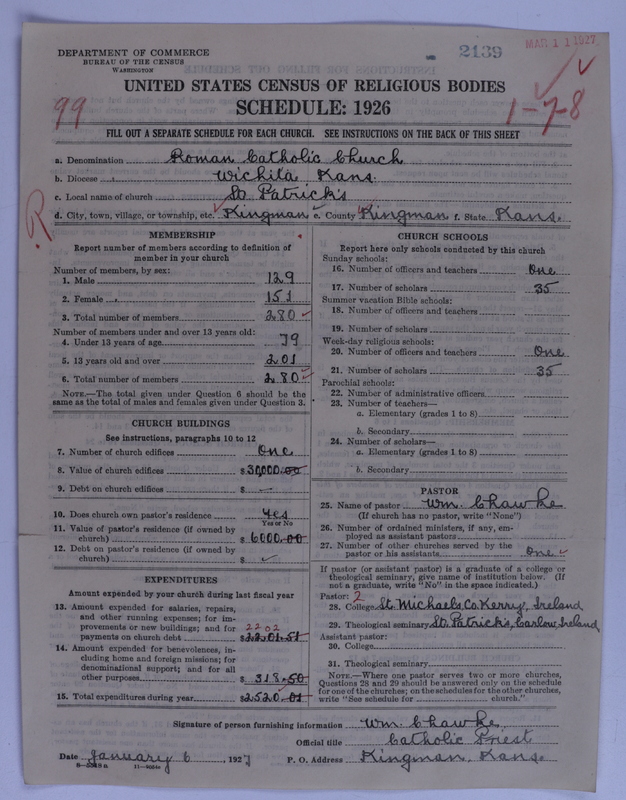 DEPARTMENT OF COMMERCE
BUREAU OF THE CENSUS
WASHINGTON
2139
MAR 11 1927
UNITED STATES CENSUS OF RELIGIOUS BODIES
99
SCHEDULE: 1926
1-7-8
FILL OUT A SEPARATE SCHEDULE FOR EACH CHURCH. SEE INSTRUCTIONS ON THE BACK OF THIS SHEET
a. Denomination Roman Catholic Church
b. Diocese Wichita Kans.
c. Local name of church St Patrick's
R
d. City, town, village, or township, etc. Kingman e. County Kingman f. State Kans.
MEMBERSHIP
Report number of members according to definition of
member in your church
Number of members, by sex:
1. Male 129
2. Female 151
3. Total number of members 280
Number of members under and over 13 years old:
4. Under 13 years of age 79
5. 13 years old and over 201
6. Total number of members 280
NOTE.—The total given under Question 6 should be the
same as the total of males and females given under Question 3.
CHURCH BUILDINGS
See instructions, paragraphs 10 to 12
7. Number of church edifices One
8. Value of church edifices $30,000.00
9. Debt on church edifices $ —
10. Does church own pastor's residence Yes
Yes or No
11. Value of pastor's residence (if owned by
church) $ 6000.00
12. Debt on pastor's residence (if owned by
church) $
EXPENDITURES
Amount expended by your church during last fiscal year
13. Amount expended for salaries, repairs,
and other running expenses; for im-
provements or new building; and for 2202
payments on church debt $2201.51
14. Amount expended for benevolences, in-
cluding home and foreign missions; for
denominational support; and for all
other purposes $ 318.50
15. Total expenditures during year $2520.01
CHURCH SCHOOLS
Report here only schools conducted by this church
Sunday schools:
16. Number of officers and teachers One
17. Number of scholars 35
Summer vacation Bible schools:
18. Number of officers and teachers
19. Number of scholars
Week-day religious schools:
20. Number of officers and teachers One
21. Number of scholars 35
Parochial schools:
22. Number of administrative officers
23. Number of teachers—
a. Elementary (grades 1 to 8)
b. Secondary
24. Number of scholars—
a. Elementary (grades 1 to 8)
b. Secondary
PASTOR
25. Name of pastor Wm. Chawke
(If church has no pastor, write "None")
26. Number of ordained ministers, if any, em-
ployed as assistant pastors
27. Number of other churches served by the
pastor or his assistants One
If pastor (or assistant pastor) is a graduate of a college or
theological seminary, give name of institution below. (If
not a graduate, write "No" in the space indicated.)
Pastor: 2
28. College St. Michaels, Co Kerry, Ireland
29. Theological seminary St. Patrick's, Carlow, Ireland
Assistant pastor:
30. College
31. Theological seminary
NOTE.—Where one pastor serves two or more churches,
Questions 28 and 29 should be answered only on the schedule
for one of the churches; on the schedules for the other churches,
write "See schedule for church."
Signature of person furnishing information Wm. Chawke
Official title Catholic Priest
Date January 6, 1927
P. O. Address Kingman, Kans.